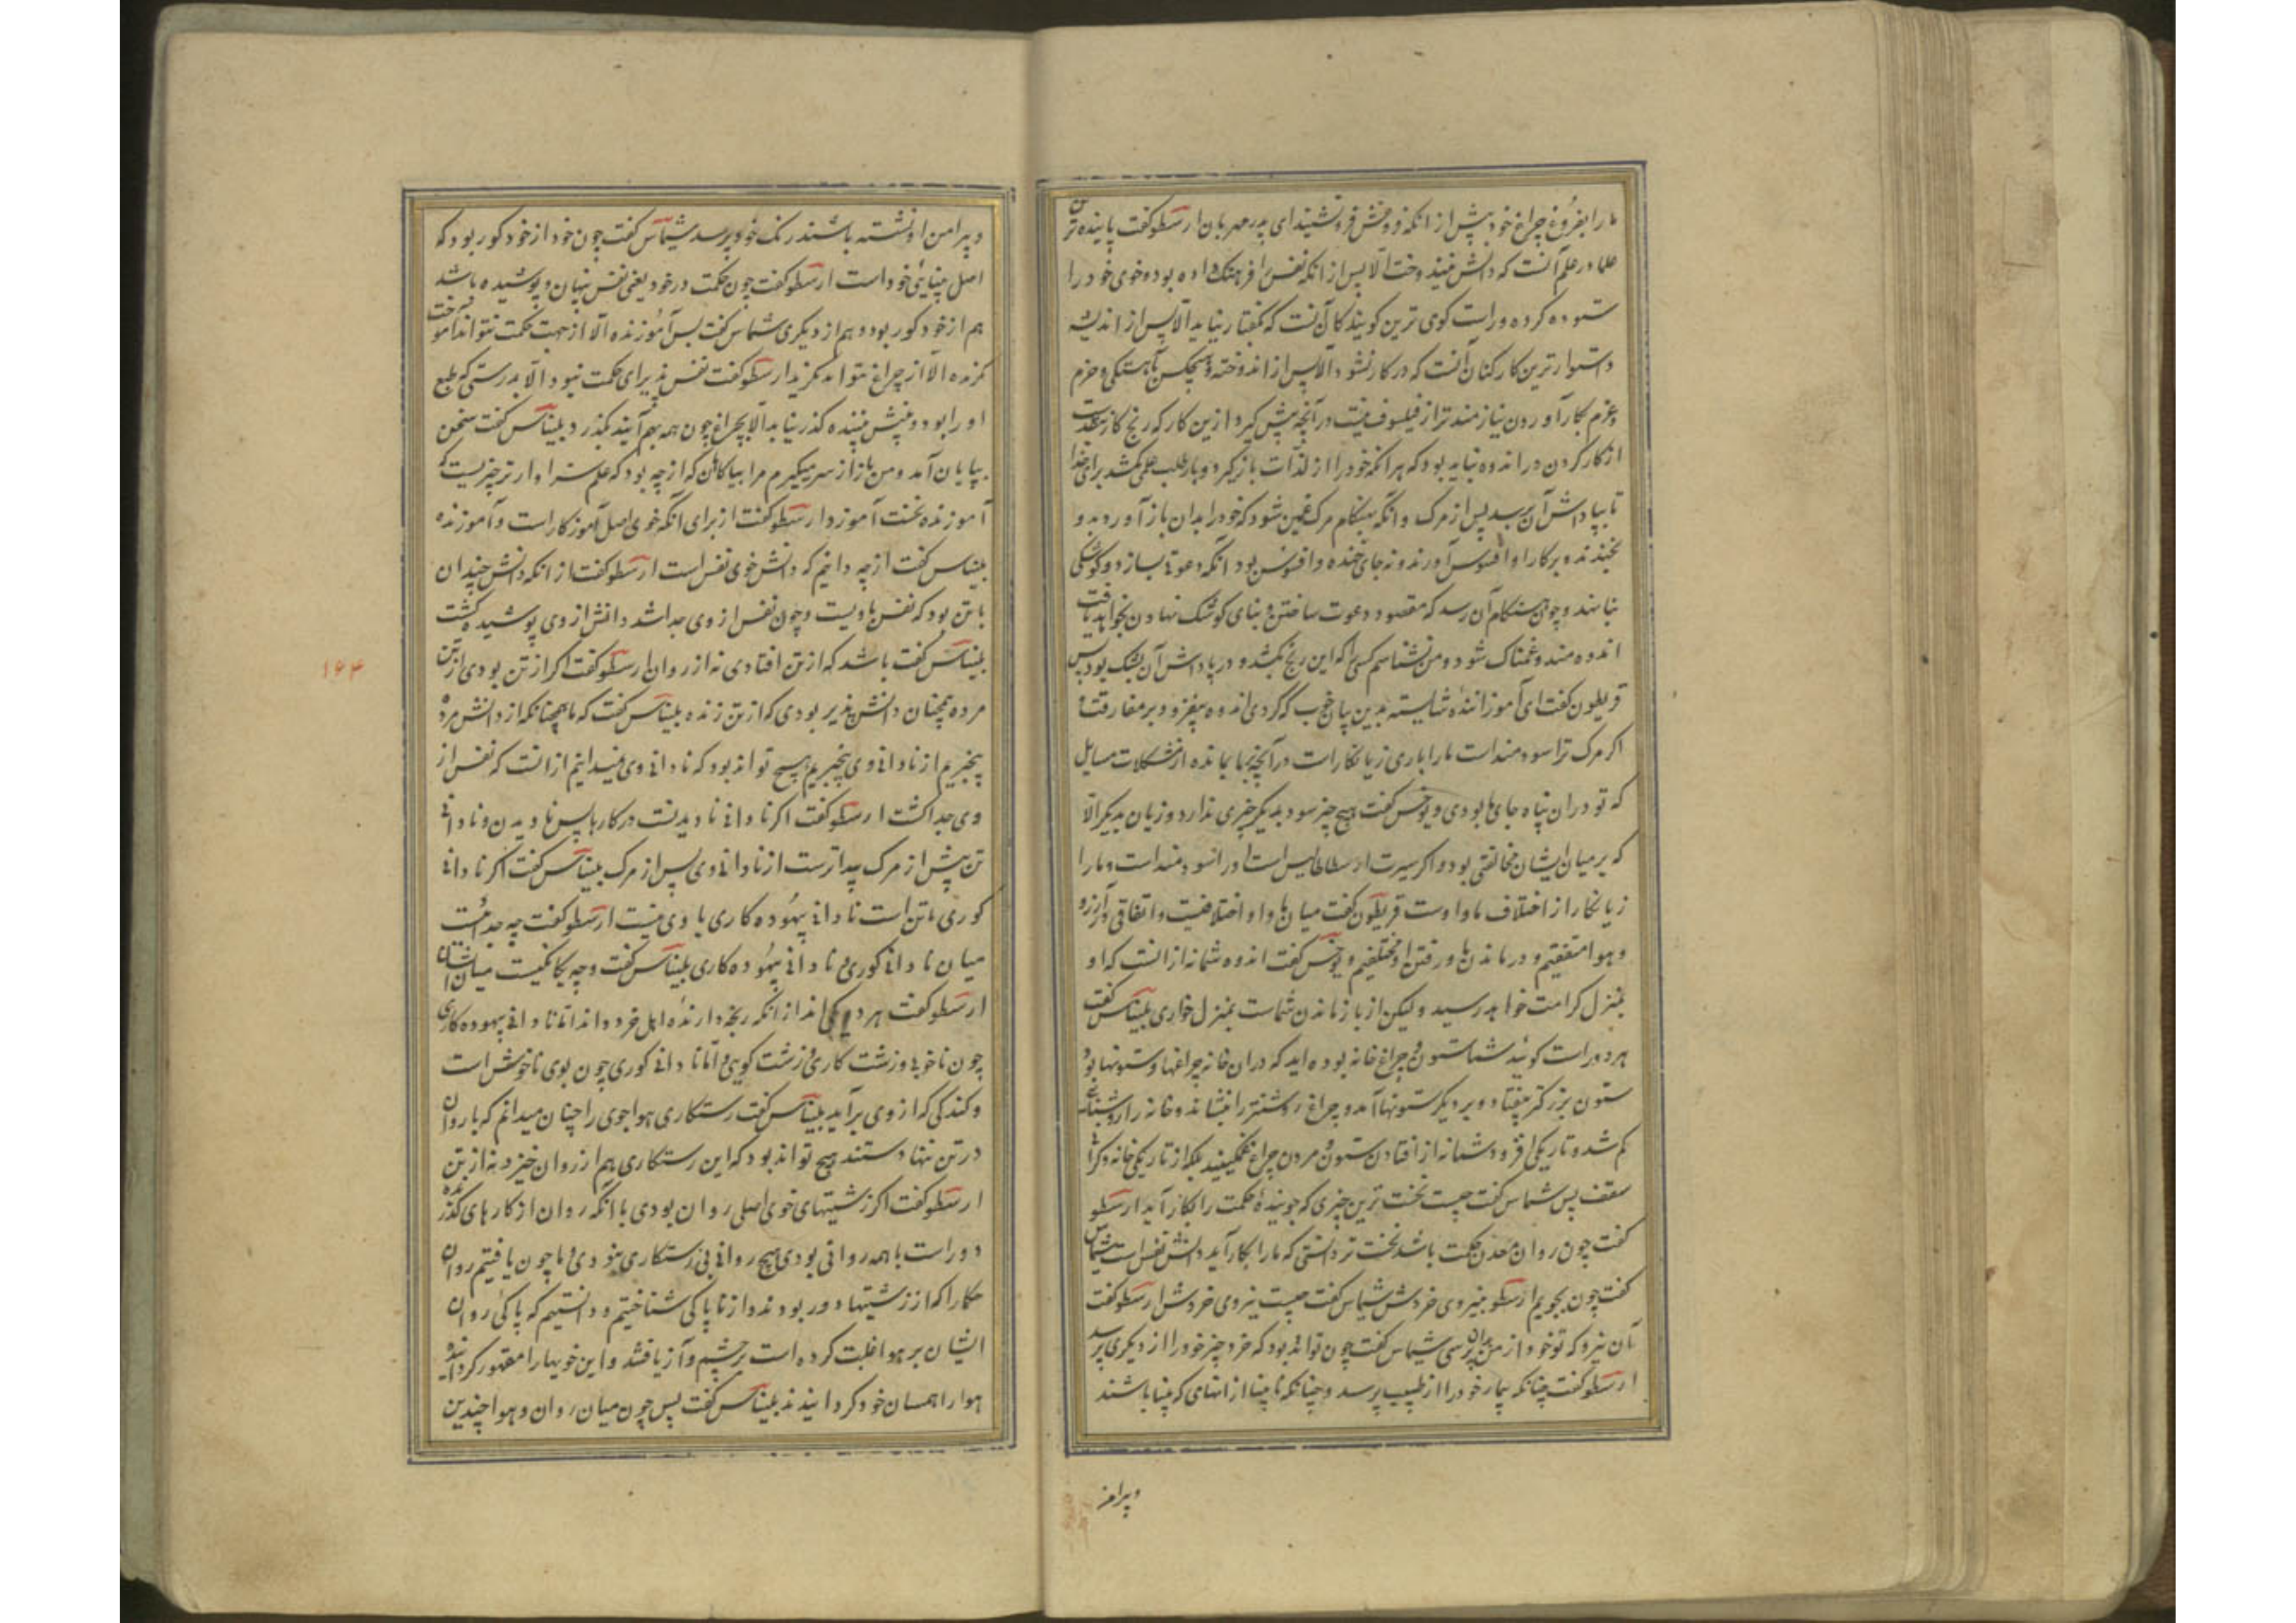 ما را بفروغ چراغ خود پیش از انکه فروغش فرونشیند ای پدر مهربان ارسطو گفت پاینده ترین
علما در علم آنست که دانش نیندوخت الا پس از انکه نفس را فرهنگ داده بود و خوی خود را
ستوده کرده و راست کوی ترین کویندکان آنست که بگفتار نیاید الا پس از اندیشه
و استوارترین کارکنان آنست که در کار نشود الا پس از اندوخته و هیچکس بآهستگی و حزم
و عزم بکار آوردن نیازمندتر از فیلسوف نیست در آنچه پیش کیرد ازین کار که رنج کار نقدست
از کار کردن در اندوه نباید بود که هر انکه خود را از لذات باز کیرد و بار طلب علم کشد برای خدا
تا بپاداش آن برسد پس از مرک و انگه بهنکام مرک غمین شود که خود را بدان باز آورد بدو
بخندند و بر کار او افسوس آورند و نه جای خنده و افسوس بود آنکه دعوتی بسازد و کوشکی
بنا نهد و چون هنکام آن رسد که مقصود دعوت ساختن و بنای کوشک نهادن بخواهد یافت
اندوه مند و غمناک شود و من نشناسم کسی را که این رنج بکشد و در پاداش آن بشک بود پس
قریطون کفت ای آموزاننده شایسته بدین پاسخ خوب که کردی اندوه بیفزود بر مفارقت و
اکر مرک ترا سودمند است ما را باری زیانکار است در آنچه بما بمانده از مشکلات مسایل
که تو در ان پناه جای ما بودی دیوخس کفت هیچ چیز سود بدیکر چیزی ندارد و زیان بدیکر الا
که بر میان ایشان مخالفتی بود و اکر سیرت ارسطاطالیس است او را سودمند است و ما را
زیانکار از اختلاف ما و اوست قریطون کفت میان ما و او اختلافیست و اتفاقی در آرزو
و هوا متفقیم و در ماندن ما و رفتن او مختلفیم دیوخس کفت اندوه شما نه از انست که او
بمنزل کرامت خواهد رسید و لیکن از باز ماندن شماست بمنزل خواری بلیناس کفت
هر دو راست کوئید شما ستون چراغ خانه بوده اید که دران خانه چراغها و ستونها بود
ستون بزرکتر بیفتاد و بر دیکر ستونها آمد و چراغ روشنتر را بنشاند و خانه را روشنائی
کم شد و تاریکی افزود شما نه از افتادن ستون و مردن چراغ غمکینید بلکه از تاریکی خانه و کرانی
سقف پس شماس کفت چیست نخست ترین چیزی که جوینده حکمت را بکار آید ارسطو
کفت چون روان معدن حکمت باشد نخست تر دانشی که ما را بکار آید دانش نفس است شیماس
کفت چون بجویم ارسطو بنیروی خردش شیماس کفت چیست نیروی خردش ارسطو کفت
آن نیرو که تو خود از من بدان پرسی شیماس کفت چون تواند بود که خرد چیز خود را از دیکری پرسد
ارسطو کفت چنانکه بیمار خود را از طبیب پرسد و چنانکه نابینا از انهای که بینا باشند
و پیرامن
و پیرامن او نشسته باشند رنک خود پرسد شیماس کفت چون خود از خود کور بود که
اصل بینایی خود است ارسطو کفت چون حکمت در خود یعنی نفس پنهان و پوشیده باشد
هم از خود کور بود و هم از دیکری شماس کفت پس آموزنده الا از جهت حکمت نتواند آموخت
نکرنده الا از چراغ نتواند نکرید ارسطو کفت نفس پذیرای حکمت نبود الا بدرستی که طبع
او را بود و بینش بیننده کذر نیابد الا بچراغ چون همه بهم آیند بکذرد بلیناس کفت سخن
بپایان آمد و من باز از سر میکیرم مرا بیاکاهان که از چه بود که علم سزاوارتر چیزیست که
آموزنده نخست آموزد ارسطو کفت از برای آنکه خوی اصل آموزکار است و آموزنده
بلیناس کفت از چه دانیم که دانش خوی نفس است ارسطو کفت از انکه دانش چندان
با تن بود که نفس باویست و چون نفس از وی جدا شد دانش از وی پوشیده کشت
بلیناس کفت باشد که از تن افتادی نه از روان ارسطو کفت اکر از تن بودی از تن
مرده همچنان دانش پذیر بودی که از تن زنده بلیناس کفت که ما همچنانکه از دانش مرده
بیخبریم از نادانی وی بیخبریم هیچ تواند بود که نادانی وی نمیدانیم ازانست که نفس از
وی جدا کشت ارسطو کفت اکر نادانی نادیدنست در کارها پس نادیدن و نادانی
تن پیش از مرک پیداترست از نادانی وی پس از مرک بلیناس کفت اکر نادانی
کوری با تن است نادانی بیهوده کاری با وی نیست ارسطو کفت چه جدائیست
میان نادانی کوری و نادانی بیهوده کاری بلیناس کفت و چه یکانکیست میان ایشان
ارسطو کفت هر دو یکی اند از انکه رنجه دارنده اهل خرد واند اما نادانی بیهوده کاری
چون ناخوبی و زشت کاری و زشت کویی و اما نادانی کوری چون بوی ناخوش است
و کندکی که از وی برآید بلیناس کفت رستکاری هواجوی را چنان میدانم که با روان
در تن تنها دستند هیچ تواند بود که این رستکاری هم از روان خیزد نه از تن
ارسطو کفت اکر زشتیهای خوی اصلی روان بودی با انکه روان از کارهای کذرنده
دور است با همه روانی بودی و هیچ روانی بی رستکاری نبودی و ما چون یافتیم روان
حکما را که از زشتیها دور بودند و از ناپاکی شناختیم و دانستیم که پاکی روان
ایشان بر هوا غلبت کرده است بر خشم و آز یافتند و این خویها را مقهور کردانیده
هوا را همسان خود کردانیدند بلیناس کفت پس چون میان روان و هوا چندین
۱۶۴